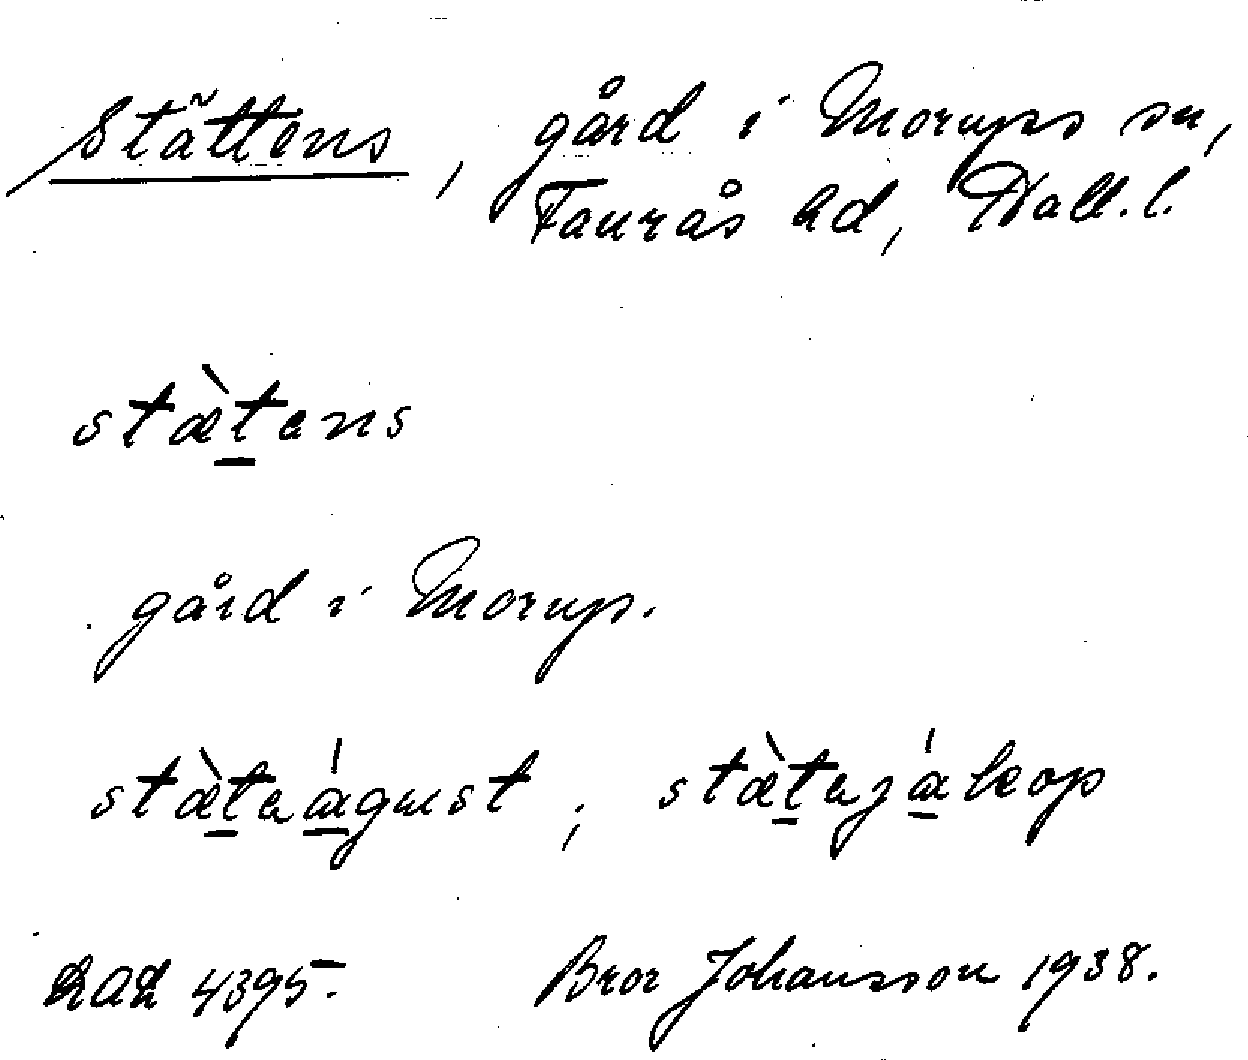 Stättens, gård i Morups sn,
Faurås hd, Hall.l.
stæ̀tens
gård i Morup.
stæ̀teágust; stæ̀tejákop
4395. Bror Johansson 1938.